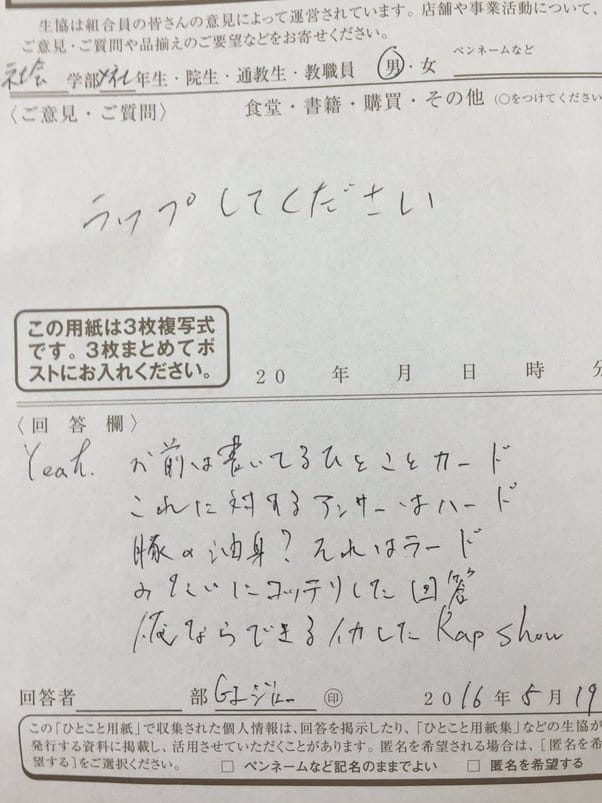 生協は組合員の皆さんの意見によって運営されています。店舗や事業活動について、
ご意見・ご質問や品揃えのご要望などをお寄せください。
社会 学部 年生・院生・通教生・教職員 男・女 ペンネームなど
〈ご意見・ご質問〉 食堂・書籍・購買・その他 (○をつけてください
ラップしてください
この用紙は3枚複写式
です。3枚まとめてポ
ストにお入れください。
20 年 月 日 時 分
〈回答欄〉
Yeah. お前は書いてるひとことカード
これに対するアンサーはハード
豚の油身?それはラード
みたいにコッテリした回答
俺ならできるイカしたRap show
回答者 部 ㊞ 2016年5月19
この「ひとこと用紙」で収集された個人情報は、回答を掲示したり、「ひとこと用紙集」などの生協が
発行する資料に掲載し、活用させていただくことがあります。匿名を希望される場合は、[匿名を希
望する]をご選択ください。 □ ペンネームなど記名のままでよい □ 匿名を希望する